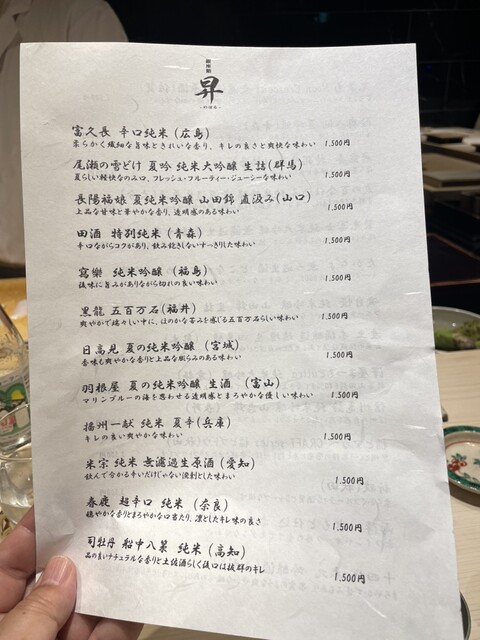 昇
-のぼる-
富久長 辛口純米 (広島)
柔らかく繊細な旨味ときれいな香り、キレの良さと爽快な味わい 1.500円
尾瀬の雪どけ 夏吟 純米大吟醸 生詰(群馬)
夏らしい軽快なのみ口、フレッシュ・フルーティー・ジューシーな味わい 1.500円
長陽福娘 夏純米吟醸 山田錦 直汲み(山口)
上品な甘味と華やかな香り、透明感のある味わい 1.500円
田酒 特別純米 (青森)
辛口ながらコクがあり、飲み飽きしないすっきりした味わい 1.500円
寫樂 純米吟醸 (福島)
後味に旨みがありながら切れの良い味わい 1.500円
黒龍 五百万石(福井)
爽やかで瑞々しい中に、ほのかな苦みを感じる五百万石らしい味わい 1.500円
日高見 夏の純米吟醸 (宮城)
香味も爽やかな香りと上品な膨らみのある味わい 1.500円
羽根屋 夏の純米吟醸 生酒 (富山)
マリンブルーの海を思わせる透明感とまろやかな優しい味わい 1.500円
播州一献 純米 夏辛(兵庫)
キレの良い爽やかな味わい 1.500円
米宗 純米 無濾過生原酒(愛知)
飲んで分かる辛いだけじゃない濃刺とした味わい 1.500円
春鹿 超辛口 純米 (奈良)
穏やかな香りとまろやかな口当たり、凛としたキレ味の良さ 1.500円
司牡丹 船中八策 純米 (高知)
品の良いナチュラルな香りと土佐酒らしく後口は抜群のキレ 1.500円